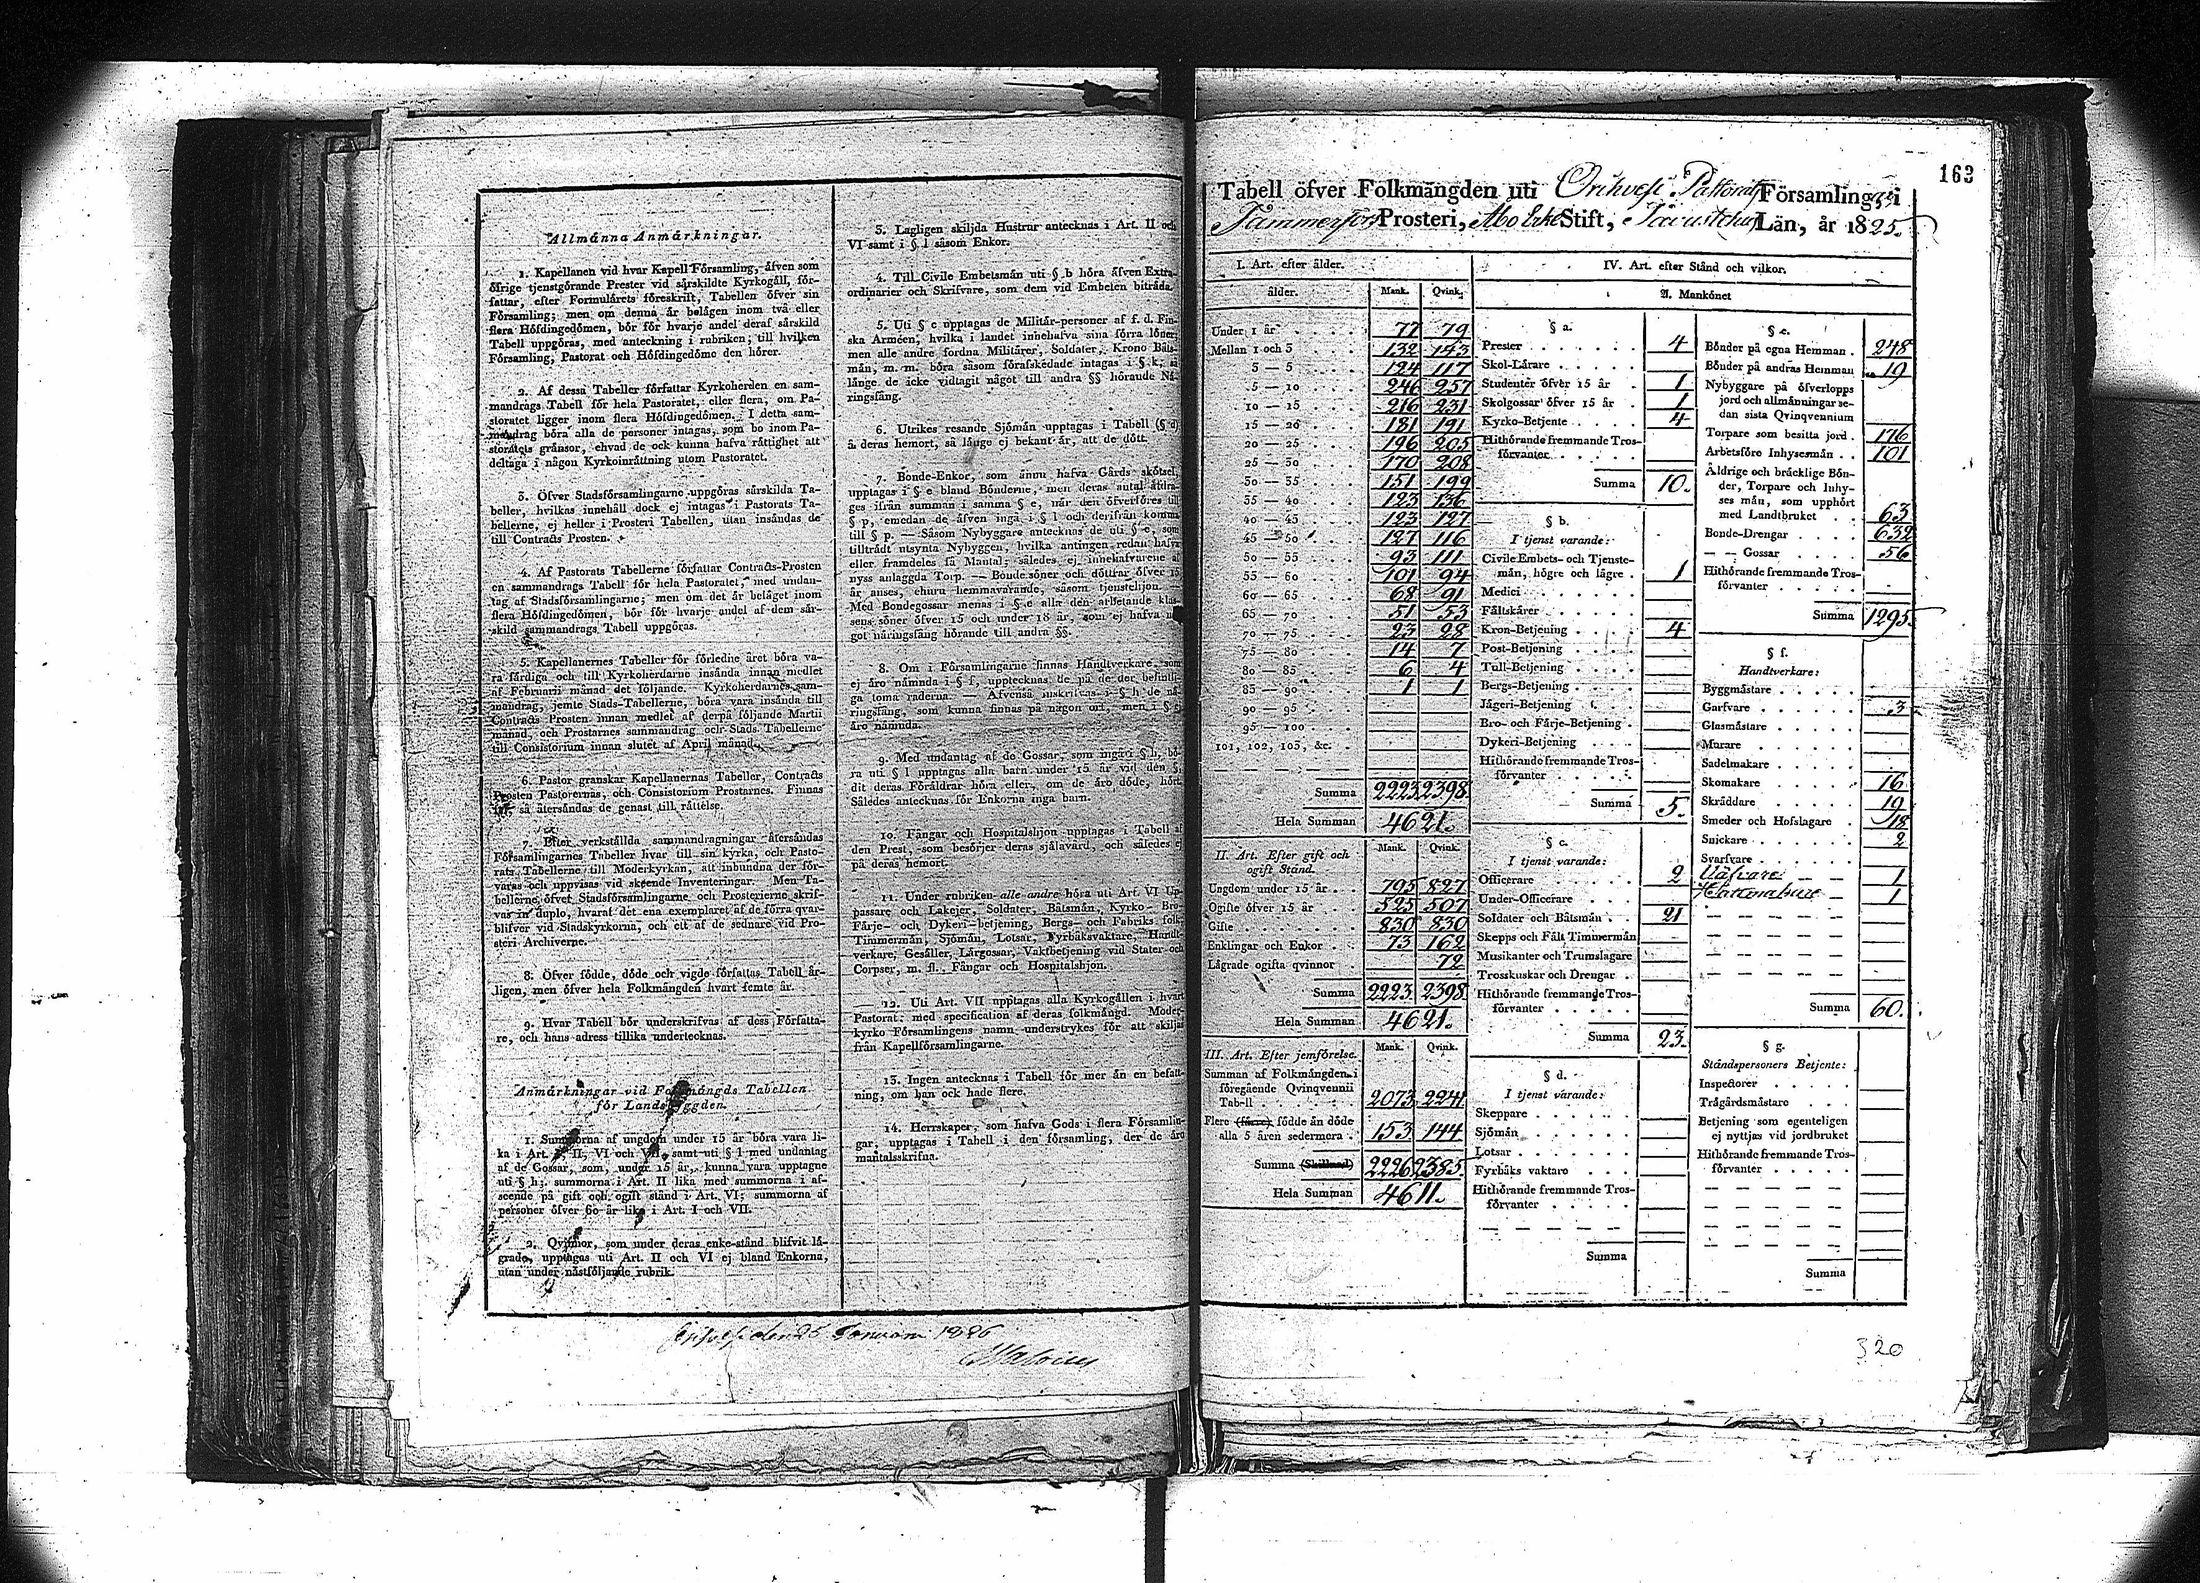 Allmänna Anmärkningar.
1. Kapellanen vid hvar Kapell Församling, äfven som
öfrige tjenstgörande Prester vid särskildte Kyrkogäll, för-
fattar, efter Formulärets föreskrift, Tabellen öfver sin
Församling; men om denna är belägen inom två eller
flera Höfdingedömen, bör för hvarje andel deraf särskild
Tabell uppgöras, med anteckning i rubriken; till hvilken
Församling, Pastorat och Höfdingedöme den hörer.
2. Af dessa Tabeller författar Kyrkoherden en sam-
mandrags Tabell för hela Pastoratet, eller flera, om Pa-
storatet ligger inom flera Höfdingedömen. I detta sam-
mandrag böra alla de personer intagas, som bo inom Pa-
storatets gränsor, ehvad de ock kunna hafva rättighet att
deltaga i någon Kyrkoinrättning utom Pastoratet.
3. Öfver Stadsförsamlingarne uppgöras särskilda Ta-
beller, hvilkas innehåll dock ej intagas i Pastorats Ta-
bellerne, ej heller i Prosteri Tabellen, utan insändas de
till Contracts Prosten.
4. Af Pastorats Tabellerne författar Contracts-Prosten
en sammandrags Tabell för hela Pastoratet, med undan-
tag af Stadsförsamlingarne; men om det är beläget inom
flera Höfdingedömen, bör för hvarje andel af dem sär-
skild sammandrags Tabell uppgöras.
5. Kapellanernes Tabeller för förledne året böra va-
ra färdiga och till Kyrkoherdarne insända innan medlet
af Februarii månad det följande. Kyrkoherdarnes sam-
mandrag, jemte Stads-Tabellerne, böra vara insända till
Contracts Prosten innan medlet af derpå följande Martii
månad, och Prostarnes sammandrag och Stads Tabellerne
till Consistorium innan slutet af April månad.
6. Pastor granskar Kapellanernas Tabeller, Contracts
Prosten Pastorernas, och Consistorium Prostarnes. Finnas
fel, så återsändas de genast till rättelse.
7. Efter verkställda sammandragningar återsändas
Församlingarnes Tabeller hvar till sin kyrka, och Pasto-
rats Tabellerne till Moderkyrkan, att inbundna der för-
varas och uppvisas vid skeende Inventeringar. Men Ta-
bellerne öfver Stadsförsamlingarne och Prosterierne skrif-
vas in duplo, hvaraf det ena exemplaret af de förra qvar-
blifver vid Stadskyrkorna, och ett af de sednare vid Pro-
steri Archiverne.
8. Öfver födde, döde och vigde författas Tabell år-
ligen, men öfver hela Folkmängden hvart femte år.
9. Hvar Tabell bör underskrifvas af dess Författa-
re, och hans adress tillika undertecknas.
Anmärkningar vid Folkmängds Tabellen
för Landsbyggden.
1. Summorna af ungdom under 15 år böra vara li-
ka i Art. I, II, VI och VII, samt uti § l med undantag
af de Gossar, som, under 15 år, kunna vara upptagne
uti § h; summorna i Art. II lika med summorna i af-
seende på gift och ogift stånd i Art. VI; summorna af
personer öfver 60 år lika i Art. I och VII.
2. Qvinnor, som under deras enke-stånd blifvit lä-
grade, upptagas uti Art. II och VI ej bland Enkorna,
utan under nästföljande rubrik.
3. Lagligen skiljda Hustrur antecknas i Art. II och
VI samt i § l såsom Enkor.
4. Till Civile Embetsmän uti § b höra äfven Extra-
ordinarier och Skrifvare, som dem vid Embeten biträda.
5. Uti § c upptagas de Militär-personer af f. d. Fin-
ska Arméen, hvilka i landet innehafva sina förra löner;
men alle andre fordna Militärer, Soldater, Krono Båts-
män, m. m. böra såsom förafskedade intagas i § k, så
länge de icke vidtagit något till andra §§ hörande Nä-
ringsfång.
6. Utrikes resande Sjömän upptagas i Tabell (§ d)
å deras hemort, så länge ej bekant är, att de dött.
7. Bonde-Enkor, som ännu hafva Gårds skötsel,
upptagas i § e bland Bönderne, men deras antal afdra-
ges ifrån summan i samma § e, när den öfverföres till
§ p, emedan de äfven ingå i § l och derifrån komma
till § p. — Såsom Nybyggare antecknas de uti § e, som
tillträdt utsynta Nybyggen, hvilka antingen redan hafva
eller framdeles få Mantal; således ej innehafvarene af
nyss anlaggda Torp. — Bonde söner och döttrar öfver 15
år anses, ehuru hemmavarande, såsom tjenstehjon. —
Med Bondegossar menas i § e alla den arbetande klas-
sens söner öfver 15 och under 18 år, som ej hafva nå-
got näringsfång hörande till andra §§.
8. Om i Församlingarne finnas Handtverkare, som
ej äro nämnda i § f, upptecknas de på de der befintli-
ga toma raderna. — Äfvenså inskrifvas i § h de nä-
ringsfång, som kunna finnas på någon ort, men i §
äro nämnda.
9. Med undantag af de Gossar, som ingått § h, bö-
ra uti § l upptagas alla barn under 15 år vid den §,
dit deras Föräldrar höra eller, om de äro döde, hört.
Således antecknas för Enkorna inga barn.
10. Fångar och Hospitalshjon upptagas i Tabell af
den Prest, som besörjer deras själavård, och således ej
på deras hemort.
11. Under rubriken alle andre höra uti Art. VI Up-
passare och Lakejer, Soldater, Båtsmän, Kyrko- Bro-
Färje- och Dykeri-betjening, Bergs- och Fabriks folk,
Timmermän, Sjömän, Lotsar, Fyrbåksvaktare, Handt-
verkare, Gesäller, Lärgossar, Vaktbetjening vid Stater och
Corpser, m. fl. Fångar och Hospitalshjon.
12. Uti Art. VII upptagas alla Kyrkogällen i hvart
Pastorat, med specification af deras folkmängd. Moder-
kyrko Församlingens namn understrykes för att skiljas
från Kapellförsamlingarne.
13. Ingen antecknas i Tabell för mer än en befatt-
ning, om han ock hade flere.
14. Herrskaper, som hafva Gods i flera Församlin-
gar, upptagas i Tabell i den församling, der de äro
mantalsskrifna.
den 25 Januari 1826
163
Tabell öfver Folkmängden uti Orihvesi Pastorats Församlingar i
Tammerfors Prosteri, Åbo Erke Stift, Tavastehus Län, år 1825.
I. Art. efter ålder.
ålder. Mank. Qvink.
Under 1 år 77 79
Mellan 1 och 3 132 143
3 — 5 124 117
5 — 10 246 257
10 — 15 216 231
15 — 20 181 191
20 — 25 196 205
25 — 30 170 208
30 — 35 151 199
35 — 40 123 136
40 — 45 123 127
45 — 50 127 116
50 — 55 93 111
55 — 60 101 94
60 — 65 68 91
65 — 70 51 53
70 — 75 23 28
75 — 80 14 7
80 — 85 6 4
85 — 90 1 1
90 — 95
95 — 100
101, 102, 103, &c.
Summa 2223 2398
Hela Summan 4621.
II. Art. Efter gift och
ogift Stånd.
Mank. Qvink.
Ungdom under 15 år 795 827
Ogifte öfver 15 år 525 507
Gifte 830 830
Enklingar och Enkor 73 162
Lägrade ogifta qvinnor 72
Summa 2223 2398
Hela Summan 4621.
III. Art. Efter jemförelse.
Mank. Qvink.
Summan af Folkmängden i
föregående Qvinqvennii
Tabell 2073 2241
Flere (färre) födde än döde
alla 5 åren sedermera 153 144
Summa (Skillnad) 2226 2385
Hela Summan 4611.
IV. Art. efter Stånd och vilkor.
A. Mankönet
§ a.
Prester 4
Skol-Lärare
Studenter öfver 15 år 1
Skolgossar öfver 15 år 1
Kyrko-Betjente 4
Hithörande fremmande Tros-
förvanter
Summa 10.
§ b.
I tjenst varande:
Civile Embets- och Tjenste-
män, högre och lägre 1
Medici
Fältskärer
Kron-Betjening 4
Post-Betjening
Tull-Betjening
Bergs-Betjening
Jägeri-Betjening
Bro- och Färje-Betjening
Dykeri-Betjening
Hithörande fremmande Tros-
förvanter
Summa 5.
§ c.
I tjenst varande:
Officerare 2
Under-Officerare
Soldater och Båtsmän 21
Skepps och Fält Timmermän
Musikanter och Trumslagare
Trosskuskar och Drengar
Hithörande fremmande Tros-
förvanter
Summa 23.
§ d.
I tjenst varande:
Skeppare
Sjömän
Lotsar
Fyrbåks vaktare
Hithörande fremmande Tros-
förvanter
Summa
§ e.
Bönder på egna Hemman 248
Bönder på andras Hemman 19
Nybyggare på öfverlopps
jord och allmänningar se-
dan sista Qvinqvennium
Torpare som besitta jord 176
Arbetsföre Inhysesmän 101
Åldrige och bräcklige Bön-
der, Torpare och Inhy-
ses män, som upphört
med Landtbruket 63
Bonde-Drengar 632
— — Gossar 56
Hithörande fremmande Tros-
förvanter
Summa 1295.
§ f.
Handtverkare:
Byggmästare
Garfvare 3
Glasmästare
Murare
Sadelmakare
Skomakare 16
Skräddare 19
Smeder och Hofslagare 18
Snickare 2
Svarfvare
Väfvare 1
Hattmakare 1
Summa 60.
§ g.
Ståndspersoners Betjente:
Inspectorer
Trägårdsmästare
Betjening som egenteligen
ej nyttjas vid jordbruket
Hithörande fremmande Tros-
förvanter
Summa
320